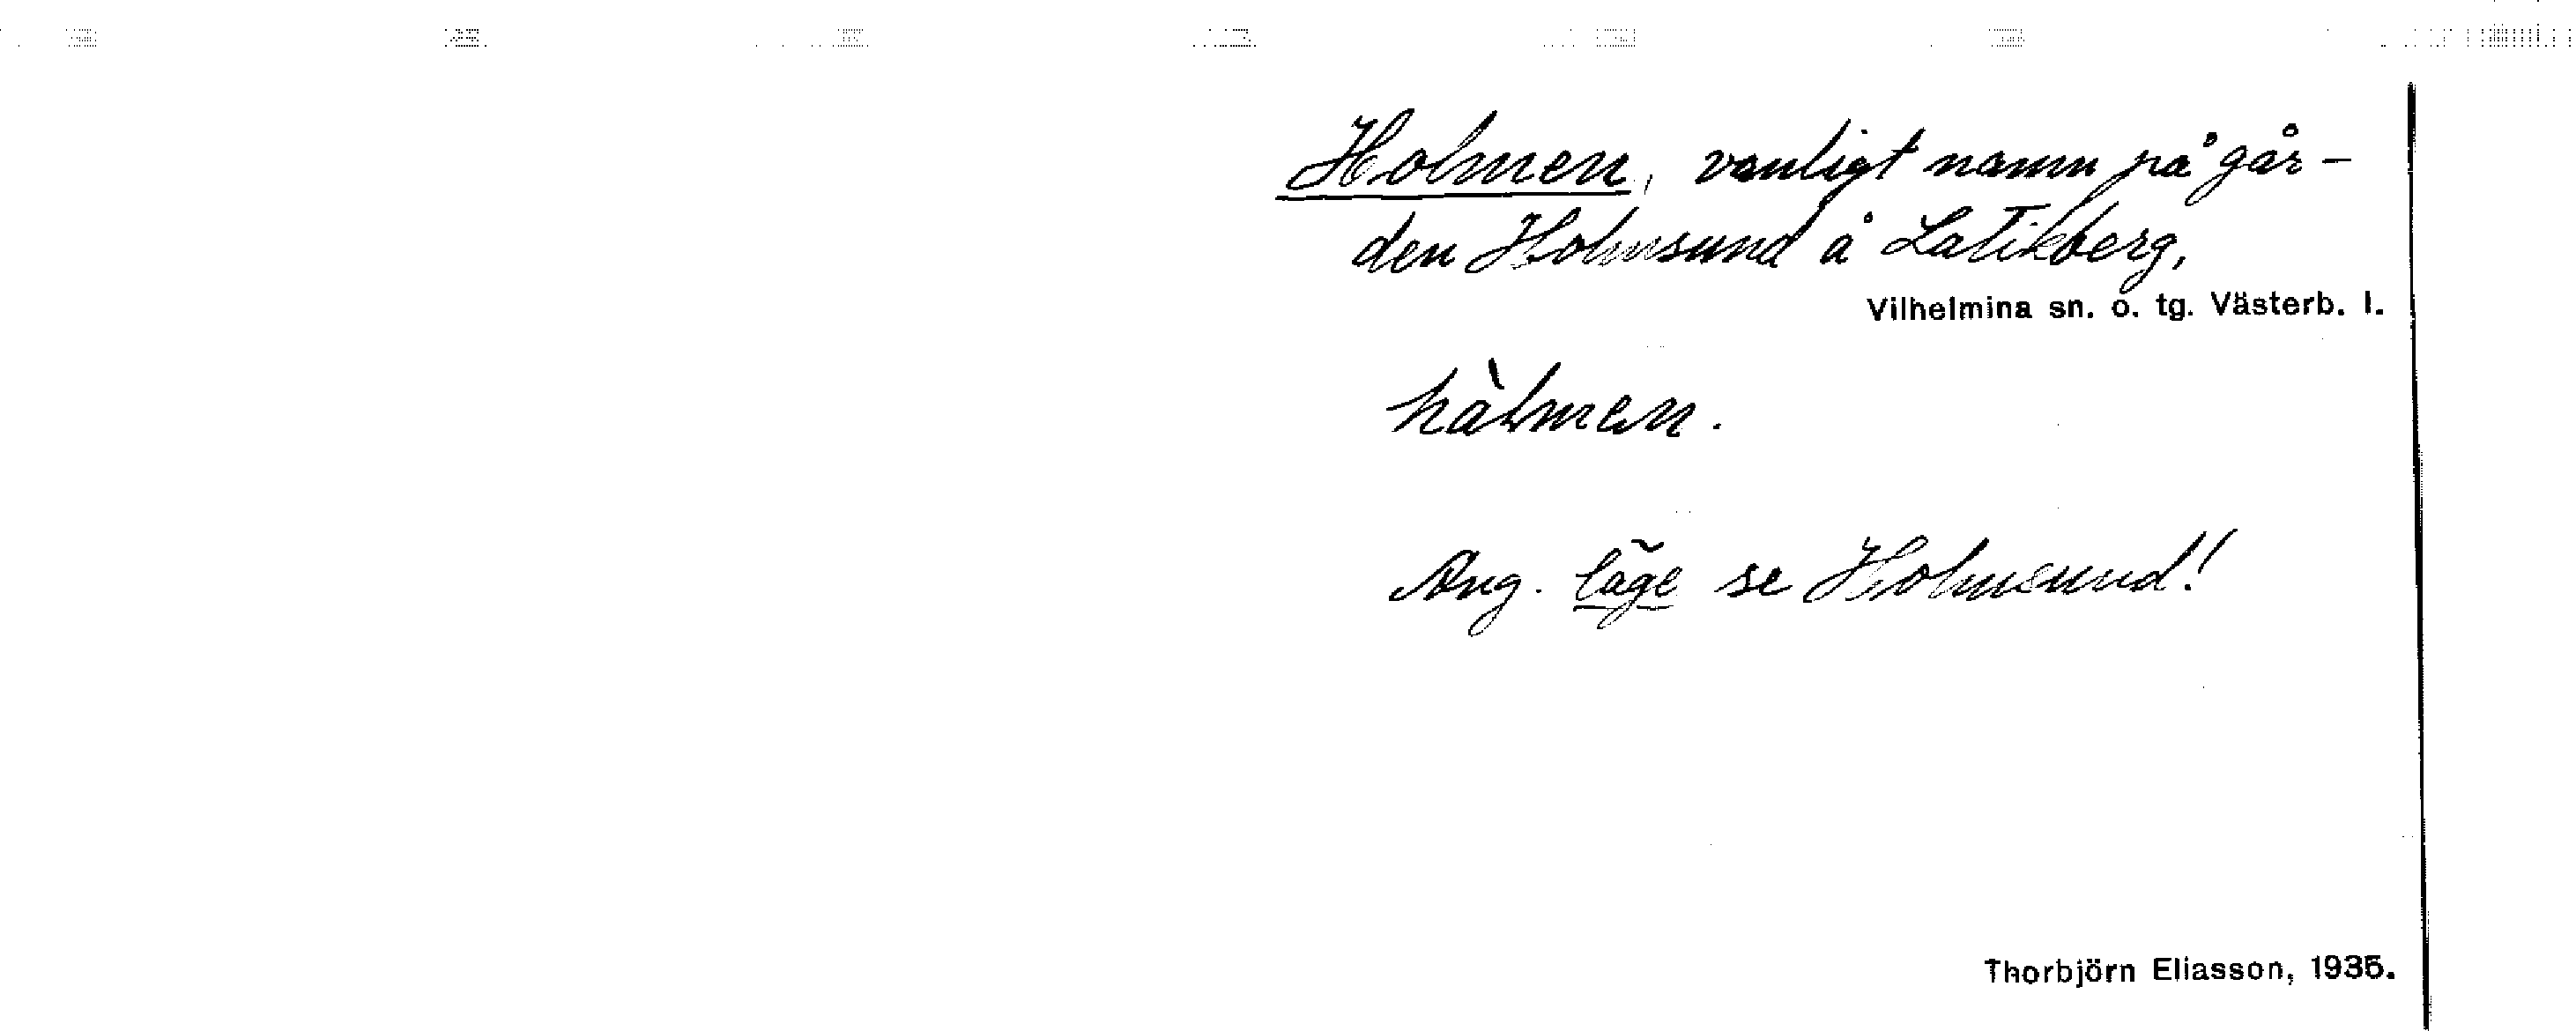 Holmen, vanligt namn på går-
den Holmsund å Latikberg,
Vilhelmina sn. o. tg. Västerb. l.
hàlmen.
Ang. läge se Holmsund!
Thorbjörn Eliasson, 1935.